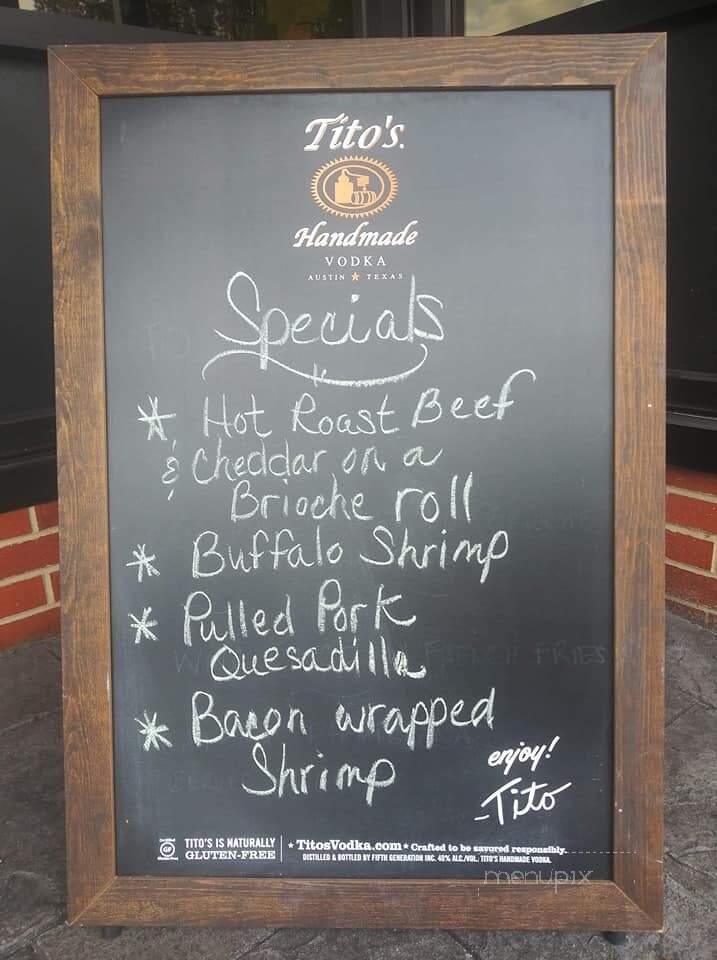 Tito's
Handmade
VODKA
AUSTIN ★ TEXAS
Specials
* Hot Roast Beef
& Cheddar on a
Brioche roll
* Buffalo Shrimp
* Pulled Pork
Quesadilla
FRENCH FRIES
* Bacon wrapped
Shrimp
enjoy!
-Tito
GF
TITO'S IS NATURALLY
GLUTEN-FREE
★ TitosVodka.com ★ Crafted to be savored responsibly.
DISTILLED & BOTTLED BY FIFTH GENERATION INC. 40% ALC./VOL. TITO'S HANDMADE VODKA.
menupix